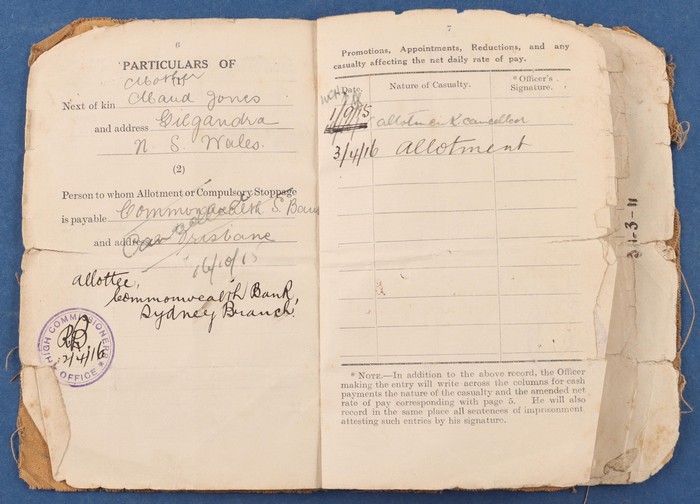 6
PARTICULARS OF
Mother
Next of kin Maud Jones
and address Gilgandra
N. S. Wales.
(2)
Person to whom Allotment or Compulsory Stoppage
is payable Commonwealth S. Bank
and address Brisbane
16/10/15
Allottee,
Commonwealth Bank,
Sydney Branch.
HIGH COMMISSIONER'S
2/4/16
OFFICE
7
Promotions, Appointments, Reductions, and any
casualty affecting the net daily rate of pay.
Date.
Nature of Casualty.
* Officer's
Signature.
1/9/15 allotment cancelled
3/4/16 Allotment
* NOTE.—In addition to the above record, the Officer
making the entry will write across the columns for cash
payments the nature of the casualty and the amended net
rate of pay corresponding with page 5. He will also
record in the same place all sentences of imprisonment
attesting such entries by his signature.